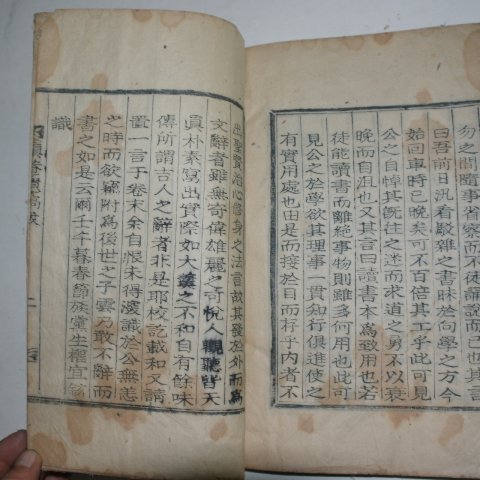 勿之間隨事省察而已也其言
曰吾前日況看駁雜之書昧於向學之方今
始回車時已晚矣可不百倍其工乎此可見
公之自悼其旣往之迷而求道之勇不以衰
晚而自沮也又其言曰讀書本爲致用也若
徒能讀書而離絶事物則雖多何用也此可
見公之於學欲其理事一貫知行俱進使之
有實用處也由是而接於目而存乎內者不
出聖賢治心修身之法言故其發於外而爲
文辭者雖無奇偉雄麗之可悅人觀聽皆天
眞朴素寫出實際如大羹之不和自有餘味
傳所謂古人之辭者非是耶校訖載和又請
置一言于卷末余自恨未得議於公無恙
之時而欲竊附爲後世之子雲乃敢不辭而
書之如是云爾壬午暮春節族黨生權宜
識
遺稿跋
二